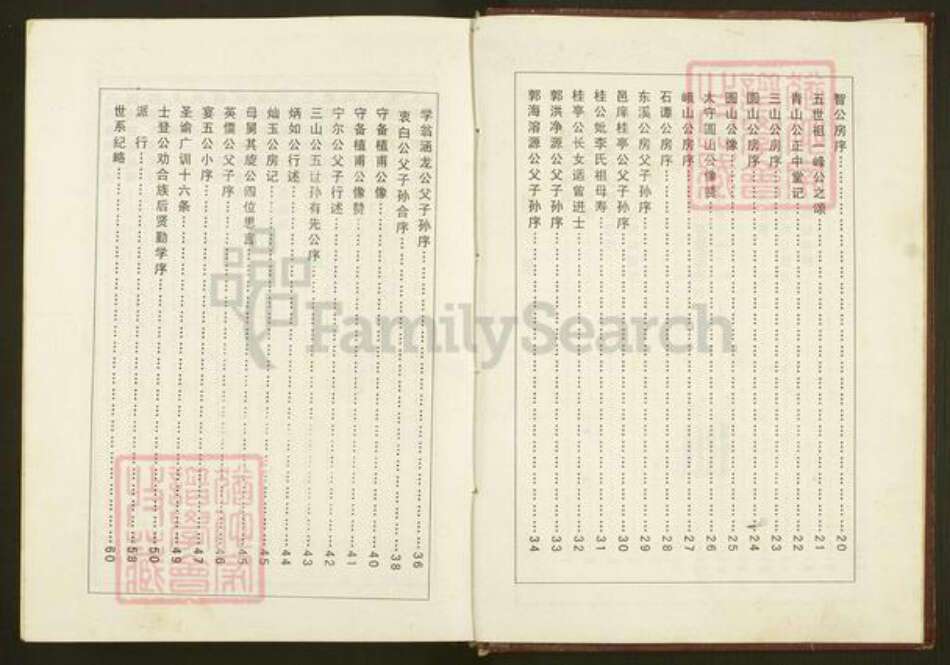 智公房序 20
五世祖一峰公之颂 21
青山公正中堂记 22
三山公房序 23
圆山公房序 24
圆山公像 25
太守圆山公像赞 26
峨山公房序 27
石潭公房序 28
东溪公房父子孙序 29
邑庠桂亭公父子孙序 30
桂公妣李氏祖母寿 31
桂亭公长女适曾进士 32
郭洪净源公父子孙序 33
郭海溶源公父子孙序 34
学翁涵龙公父子孙序 36
衷白公父子孙合序 38
守备植甫公像 40
守备植甫公像赞 41
宁尔公父子行述 42
三山公五世孙有先公序 43
炳如公行述 44
灿玉公房记 45
母舅其旋公四位 45
英儒公父子序 46
宴五公小序 47
圣谕广训十六条 49
士登公劝合族后贤勤学序 50
派行 58
世系纪略 60
FamilySearch